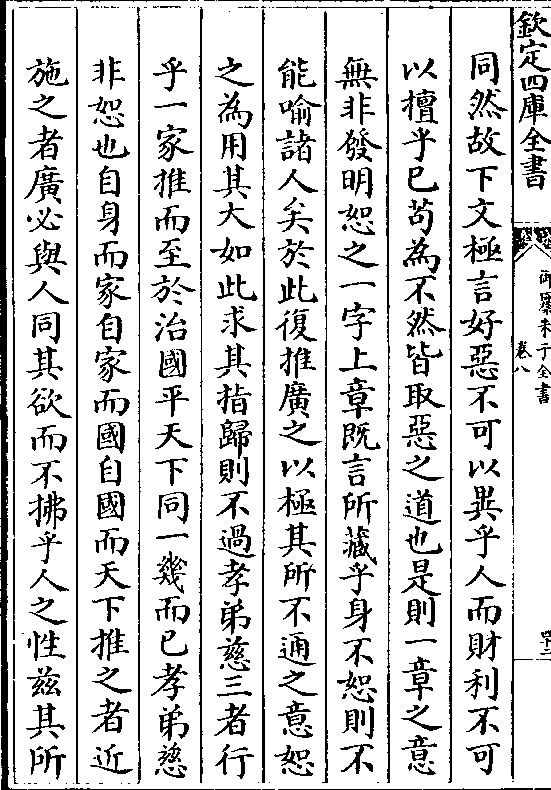 欽定四庫全書
御纂朱子全書
卷八
同然故下文極言好惡不可以異乎人而財利不可
以擅乎已苟為不然皆取惡之道也是則一章之意
無非發明恕之一字上章既言所藏乎身不恕則不
能喻諸人矣於此復推廣之以極其所不通之意恕
之為用其大如此求其指歸則不過孝弟慈三者行
乎一家推而至於治國平天下同一幾而已孝弟慈
非恕也自身而家自家而國自國而天下推之者近
施之者廣必與人同其欲而不拂乎人之性茲其所